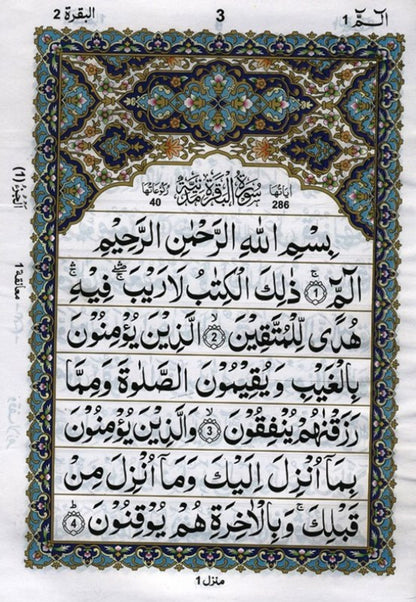 البقرة ٢
3
الٓمّٓ ١
اٰيَاتُهَا 286
سُوْرَةُ الْبَقَرَةِ مَدَنِيَّةٌ
رُكُوْعَاتُهَا 40
بِسْمِ اللّٰهِ الرَّحْمٰنِ الرَّحِيْمِ
الٓمّٓ ۚ﴿1﴾ ذٰلِكَ الْكِتٰبُ لَا رَيْبَ ۛۖۚ فِيْهِ ۛۚ
هُدًى لِّلْمُتَّقِيْنَ ۙ﴿2﴾ الَّذِيْنَ يُؤْمِنُوْنَ
بِالْغَيْبِ وَيُقِيْمُوْنَ الصَّلٰوةَ وَمِمَّا
رَزَقْنٰهُمْ يُنْفِقُوْنَ ۙ﴿3﴾ وَالَّذِيْنَ يُؤْمِنُوْنَ
بِمَاۤ اُنْزِلَ اِلَيْكَ وَمَاۤ اُنْزِلَ مِنْ
قَبْلِكَ ۚ وَبِالْاٰخِرَةِ هُمْ يُوْقِنُوْنَ ؕ﴿4﴾
معانقة 1
منزل 1